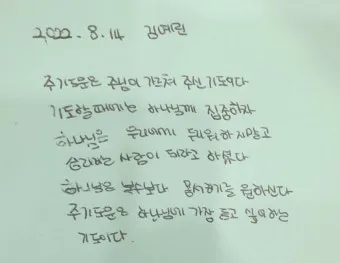 2022. 8. 14 김예린
주기도문은 주님이 가르쳐 주신 기도이다
기도할 때에는 하나님께 집중하자
하나님은 우리에게 두려워하지말고
승리하는 사람이 되라고 하셨다
하나님은 복수보다 용서하기를 원하신다
주기도문은 하나님에 가장 듣고 싶어하는
기도이다.